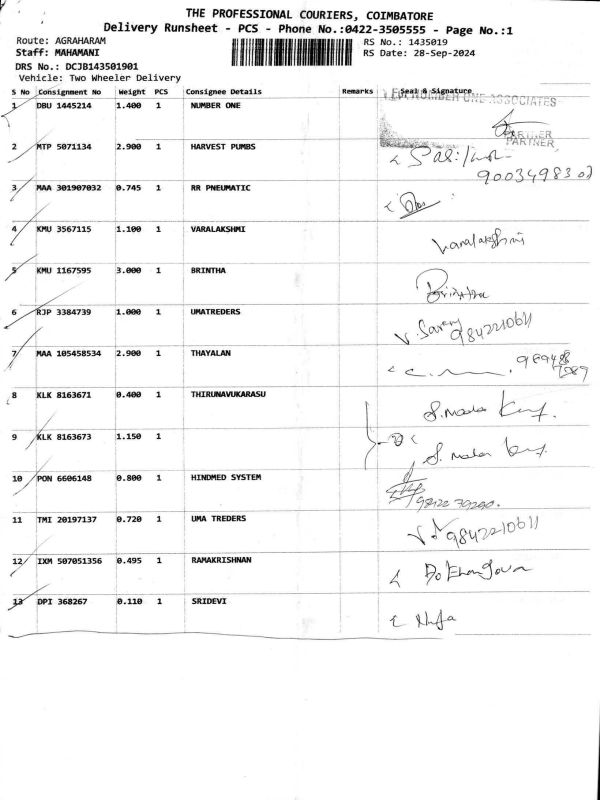 THE PROFESSIONAL COURIERS, COIMBATORE
Delivery Runsheet - PCS - Phone No.:0422-3505555 - Page No.:1
Route: AGRAHARAM RS No.: 1435019
Staff: MAHAMANI RS Date: 28-Sep-2024
DRS No.: DCJB143501901
Vehicle: Two Wheeler Delivery
S No Consignment No Weight PCS Consignee Details Remarks Seal & Signature
NUMBER ONE ASSOCIATES
1 DBU 1445214 1.400 1 NUMBER ONE
PARTNER
PARTNER
2 MTP 5071134 2.900 1 HARVEST PUMBS
3 MAA 301907032 0.745 1 RR PNEUMATIC
4 KMU 3567115 1.100 1 VARALAKSHMI
Varalakshmi
5 KMU 1167595 3.000 1 BRINTHA
Brintha
6 RJP 3384739 1.000 1 UMATREDERS
9842210611
7 MAA 105458534 2.900 1 THAYALAN
8 KLK 8163671 0.400 1 THIRUNAVUKARASU
9 KLK 8163673 1.150 1
10 PON 6606148 0.800 1 HINDMED SYSTEM
11 TMI 20197137 0.720 1 UMA TREDERS
9842210611
12 IXM 507051356 0.495 1 RAMAKRISHNAN
13 DPI 368267 0.110 1 SRIDEVI